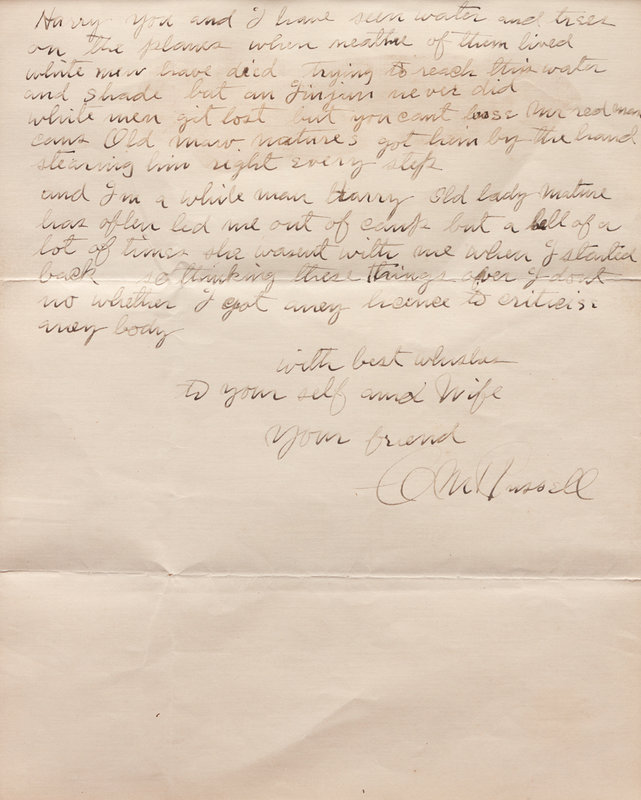 Harry you and I have seen water and trees
on the planes when neathe of them lived
white men have died trying to reach this water
and shade but an Jinjun never did
white men git lost but you cant lose Mr red man
cause Old maw natures got him by the hand
stearing him right every step
and I'm a white man Harry old lady nature
has often led me out of camp but a hell of a
lot of times she wasent with me when I started
back so thinking these things over I dont
no whether I got aney licence to criticise
aney body
with best whishes
to your self and Wife
Your friend
C M Russell